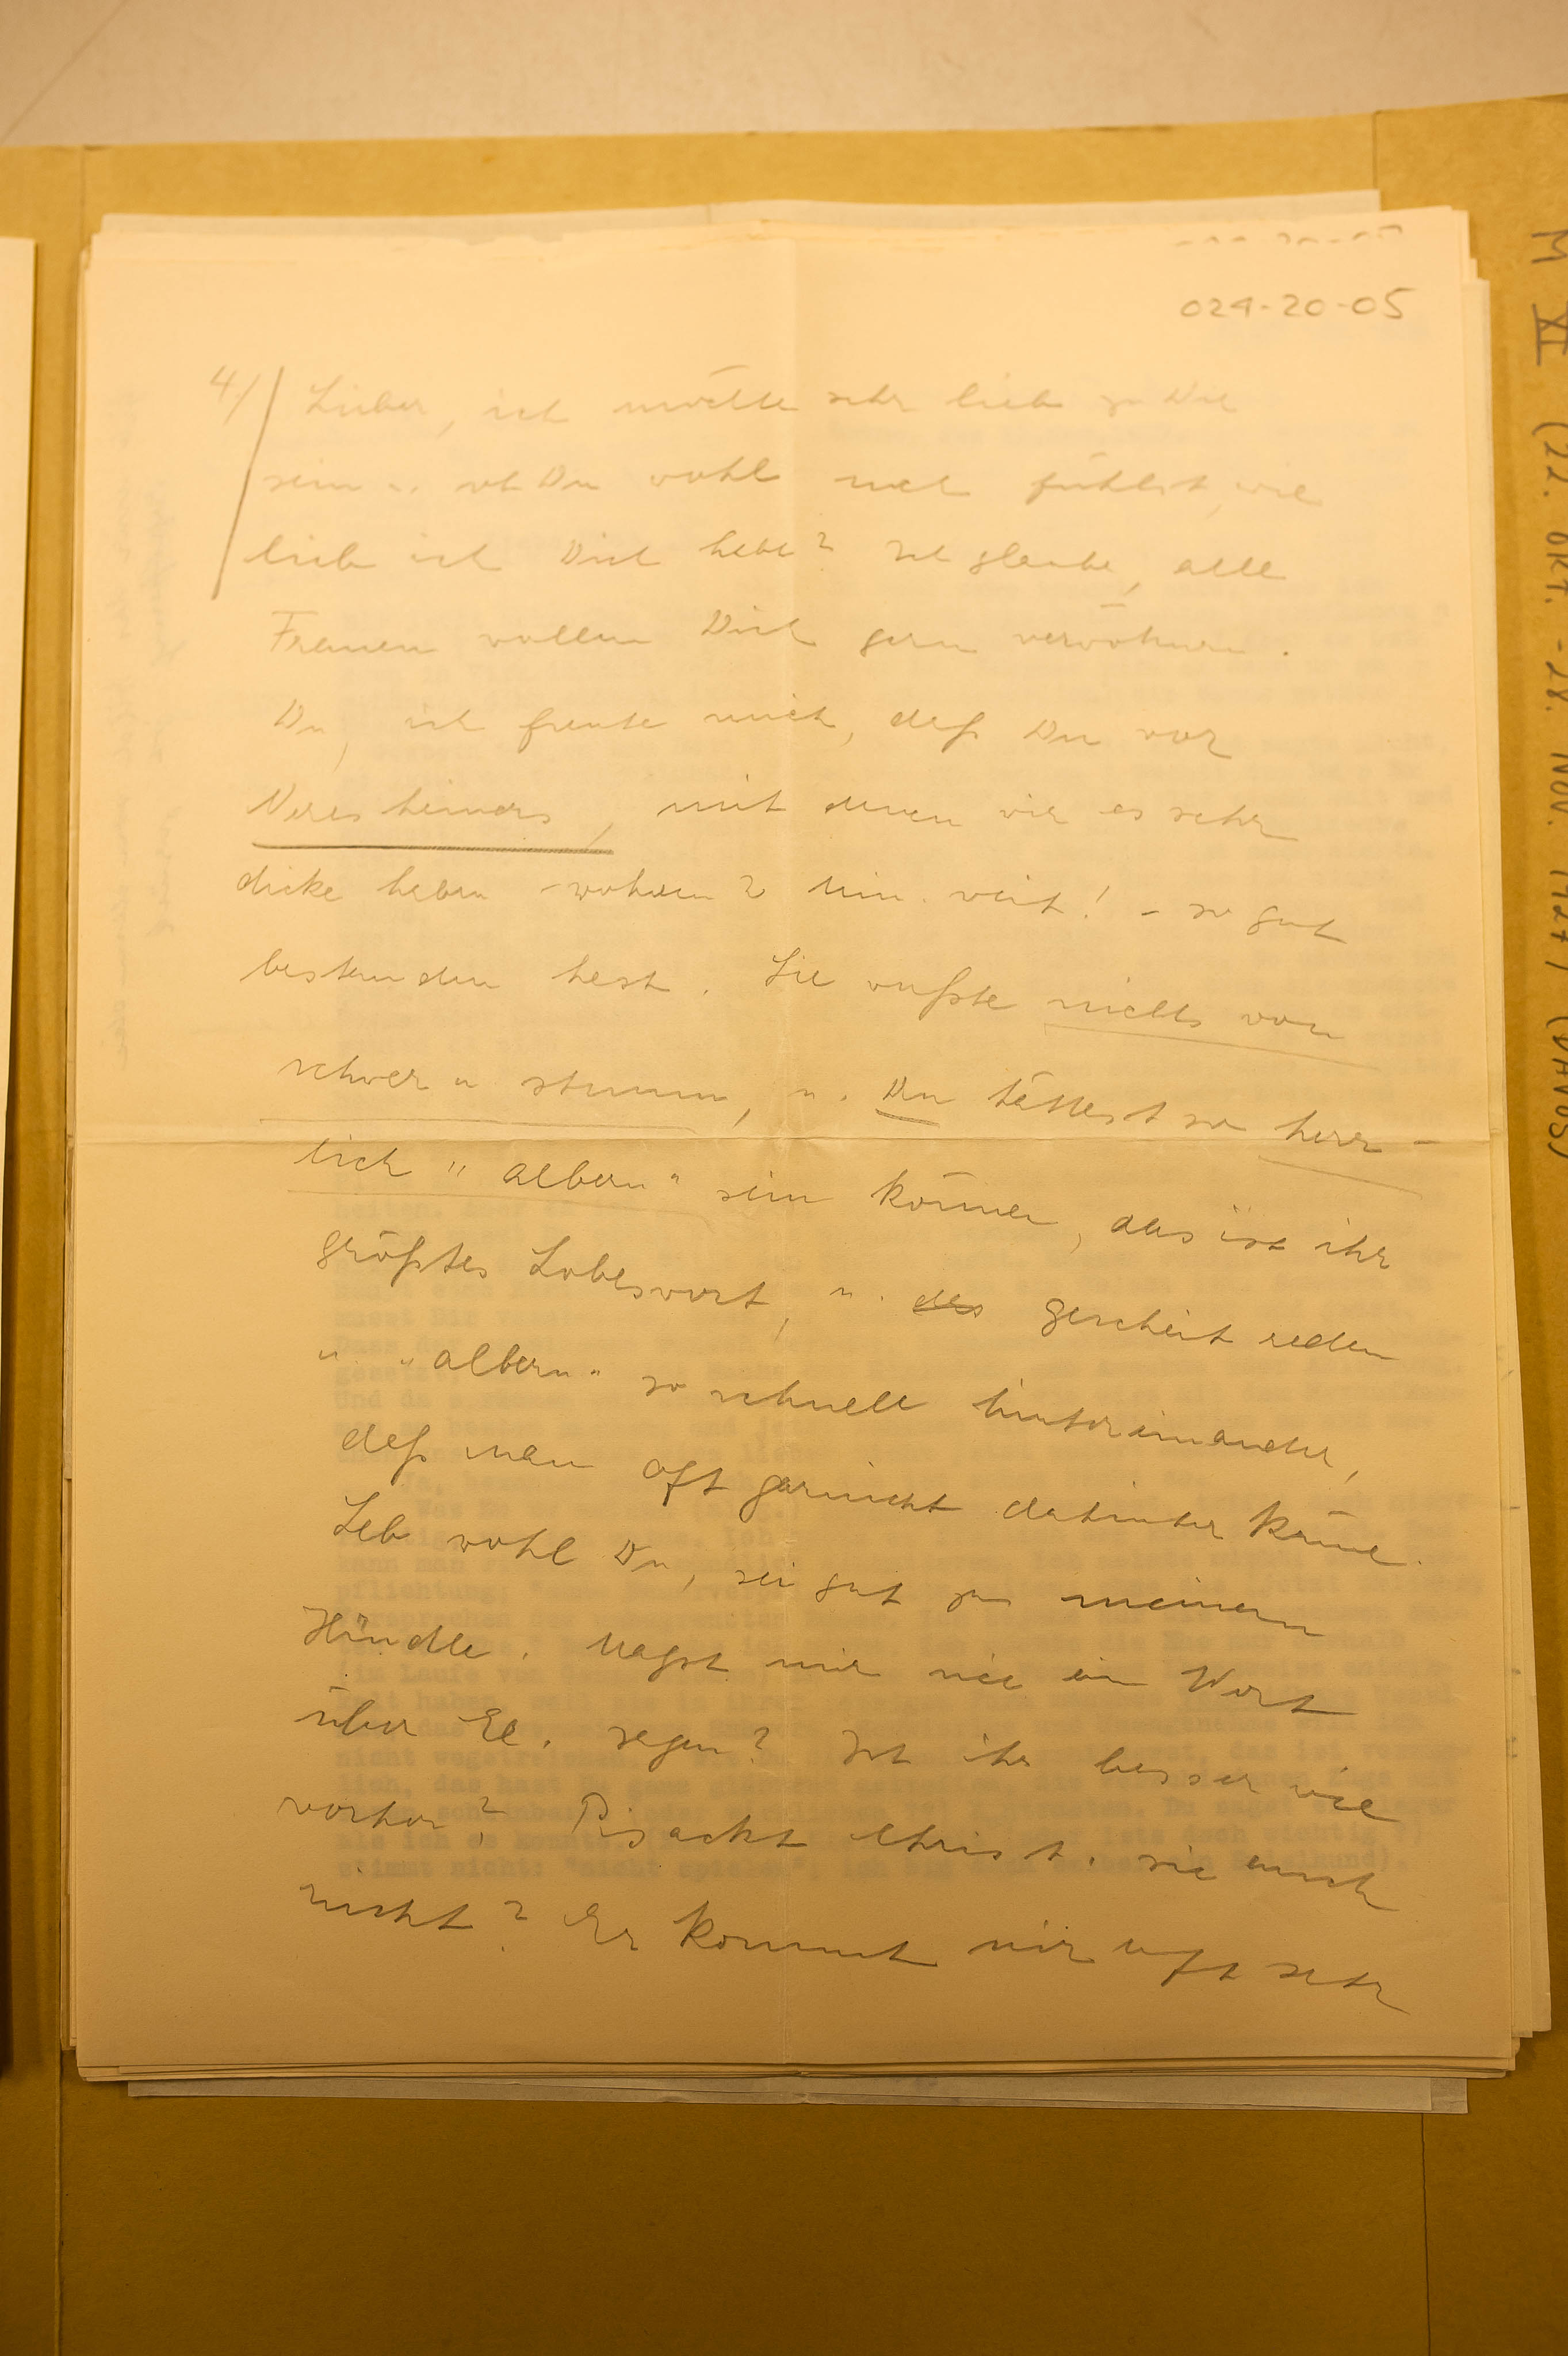 024-20-05
4/ Lieber, ich möchte sehr lieb zu Dir
sein u. ob Du wohl noch fühlst, wie
lieb ich Dich habe? Ich glaube, alle
Frauen wollen Dich gern verwöhnen.
Du, ich freute mich, daß Du vor
Neresheimers, mit denen wir es sehr
dicke haben - wohnen 2 Min. weit! - so gut
bestanden hast. Sie wußte nichts von
schwer u stumm, u. Du hättest so herr-
lich "albern" sein können, das ist ihr
größtes Lobeswort, u. das gescheit reden
u. "albern" so schnell hintereinander,
daß man oft garnicht dahinter käme.
Leb wohl Du, sei gut zu meinem
Hündle. Magst mir nie ein Wort
über El. sagen? Ist ihr besser wie
vorher? Pisackt Christ. sie auch
nicht? Er kommt mir oft sehr
M XI (22. OKT. - 28. NOV. 1927) (DAVOS)